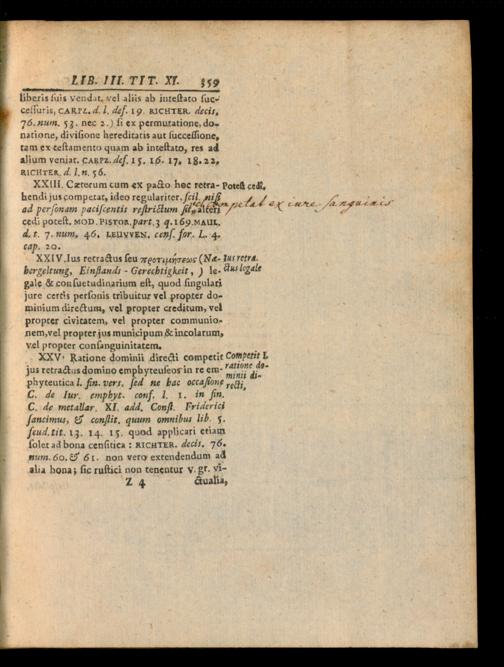 LIB. III. TIT. XI. 359
liberis suis vendat, vel aliis ab intestato suc-
cessuris, CARPZ. d. l. def. 19. RICHTER. decis.
76. num. 53. nec 2.) si ex permutatione, do-
natione, divisione hereditatis aut successione,
tam ex testamento quam ab intestato, res ad
alium veniat. CARPZ. def. 15. 16. 17. 18. 22.
RICHTER. d. l. n. 56.
XXIII. Cæterum cum ex pacto hoc retra- Potest cedi,
hendi jus competat, ideo regulariter. scil. nisi
ad personam paciscentis restrictum sit, alteri
vel competat ex iure sanguinis
cedi potest. MOD. PISTOR. part. 3 q. 169. MAUL.
d. t. 7. num. 46. LEUVVEN. cens. for. L. 4.
cap. 20.
XXIV. Jus retractus seu προτιμήσεως (Næ- Jus retra-
hergeltung, Einstands-Gerechtigkeit,) le- ctus legale
gale & consuetudinarium est, quod singulari
jure certis personis tribuitur vel propter do-
minium directum, vel propter creditum, vel
propter civitatem, vel propter communio-
nem, vel propter jus municipum & incolarum,
vel propter consanguinitatem.
XXV. Ratione dominii directi competit Competit 1.
jus retractus domino emphyteuseos in re em- ratione do-
phyteutica l. fin. vers. sed ne hac occasione minii di-
C. de Jur. emphyt. conf. l. 1. in fin. recti,
C. de metallar. XI. add. Const. Friderici
sancimus, & constit. quum omnibus lib. 5.
feud. tit. 13. 14. 15. quod applicari etiam
solet ad bona censitica: RICHTER. decis. 76.
num. 60. & 61. non vero extendendum ad
alia bona; sic rustici non tenentur v. gr. vi-
Z 4 ctualia,